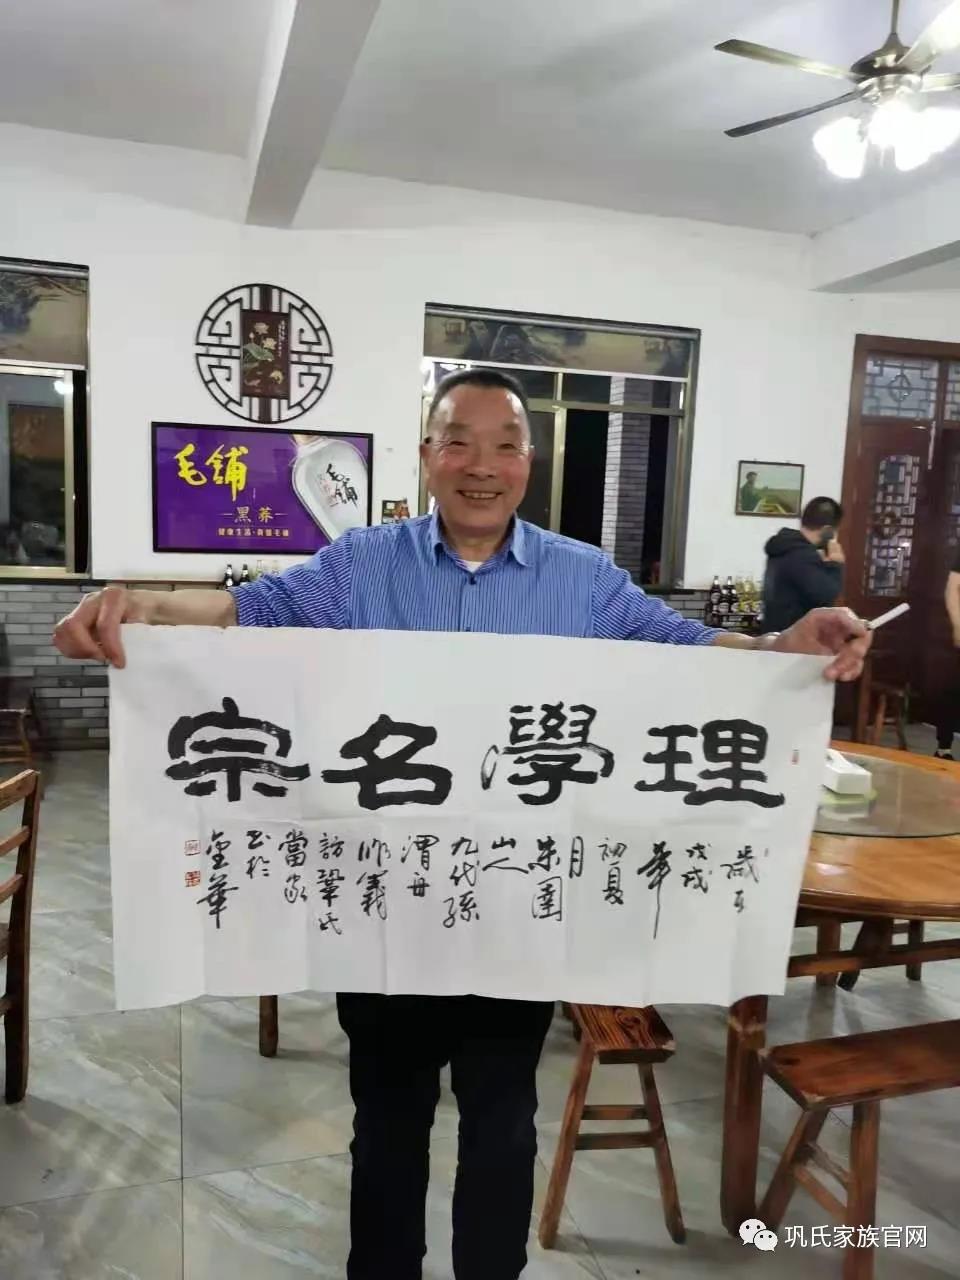 理學名宗
歲在
戊戌
年
初夏
月
朱圉
山人
九代孫
渭舟
作義
訪鞏氏
當家
書於
金華
毛铺
黑荞
健康生活·荞饮毛铺
毛铺
巩氏家族官网